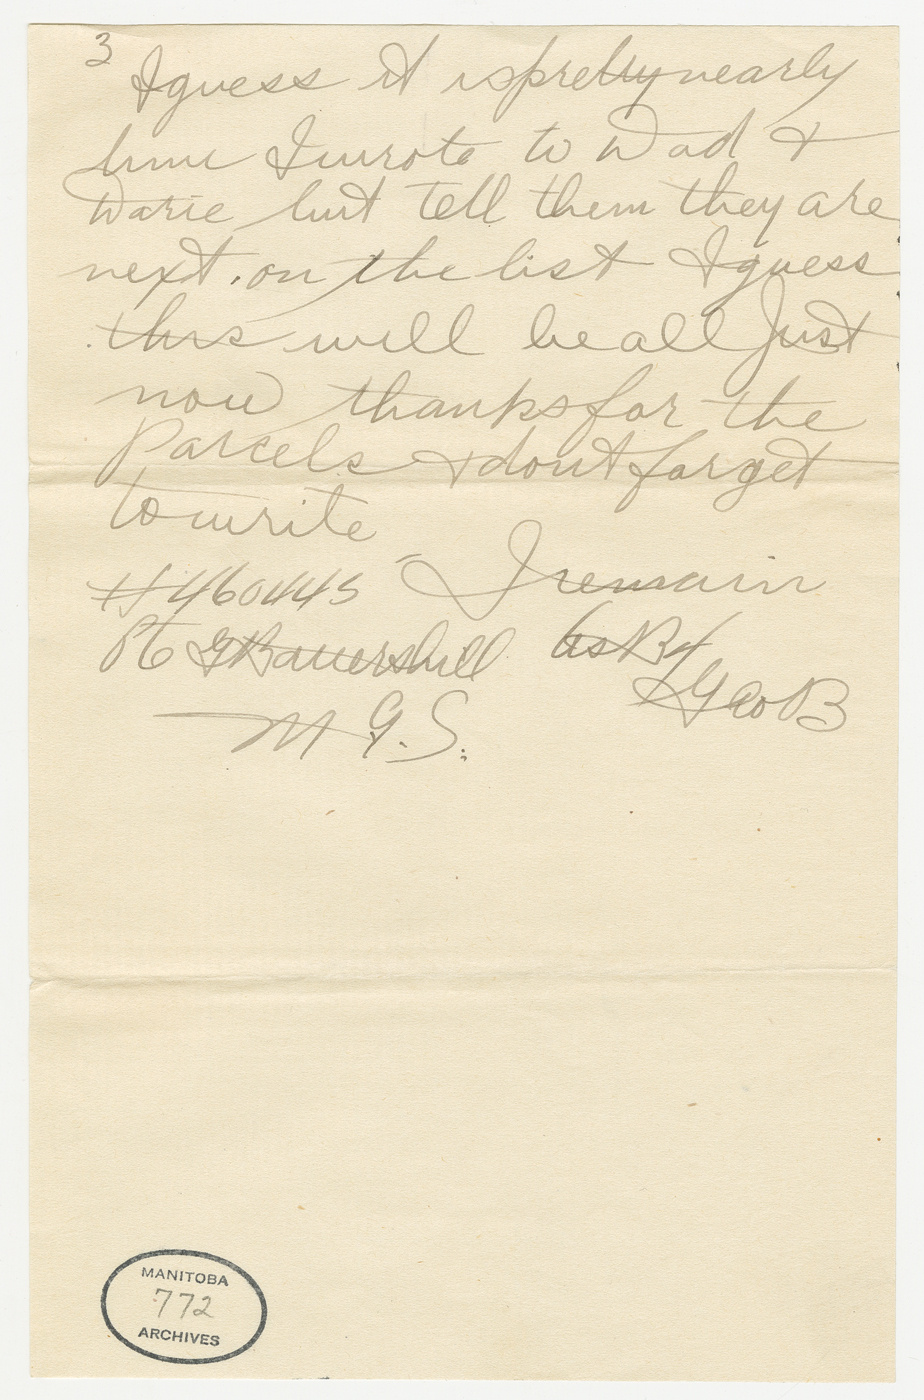 3
I guess it is pretty nearly
time I wrote to Wad &
Warie but tell them they are
next. on the list I guess
this will be all Just
now thanks for the
Parcels & dont forget
to write
I remain
#460445
Pte G Battershill
as B4
Geo B
M G. S.
MANITOBA
772
ARCHIVES